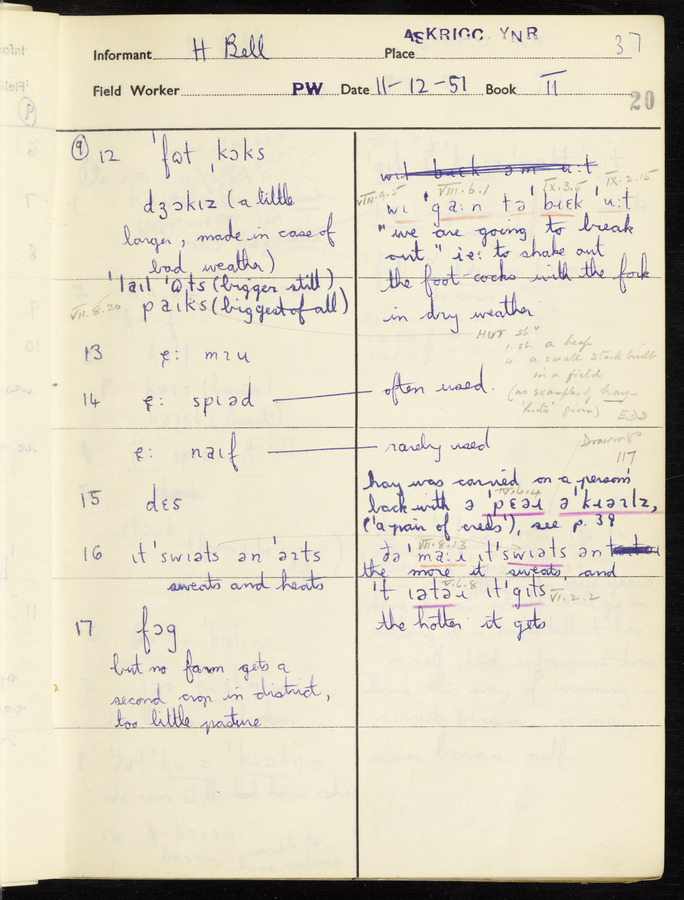 Informant H Bell Place ASKRIGG YNR 37
Field Worker PW Date 11-12-51 Book II
20
⑨ 12 ˈfɷt ˌkɔks
dʒɔkɪz (a little
larger, made in case of
bad weather)
(bigger still)
VII.8.20 paɪks (biggest of all)
13 ɛ̨: mɪu
14 ɛ̨: spɪəd
ɛ̨: naɪf
15 dɛs
16 ɪt ˈswɪəts ən ˈəɪts
sweats and heats
17 fɔg
but no farm gets a
second crop in district,
too little pasture
VIII.6.1 IX.3.5 IX.2.15
wɪ ˈga:n tə ˈbɪɛk ˈu:t
"we are going to break
out" ie: to shake out
the foot-cocks with the fork
in dry weather
HUT sb"
1. sb. a heap
a small stack built
in a field
(no examples of hay-
'huts' given) EDD
often used.
rarely used
Drawings
117
hay was carried on a person's
back with ə ˈpɛəɪ ə ˈkɪəɪlz,
('a pair of creels'), see p. 39
VII.8.13
ɪt ˈswɪəts ən
the more it sweats, and
VI.2.2
the hotter it gets